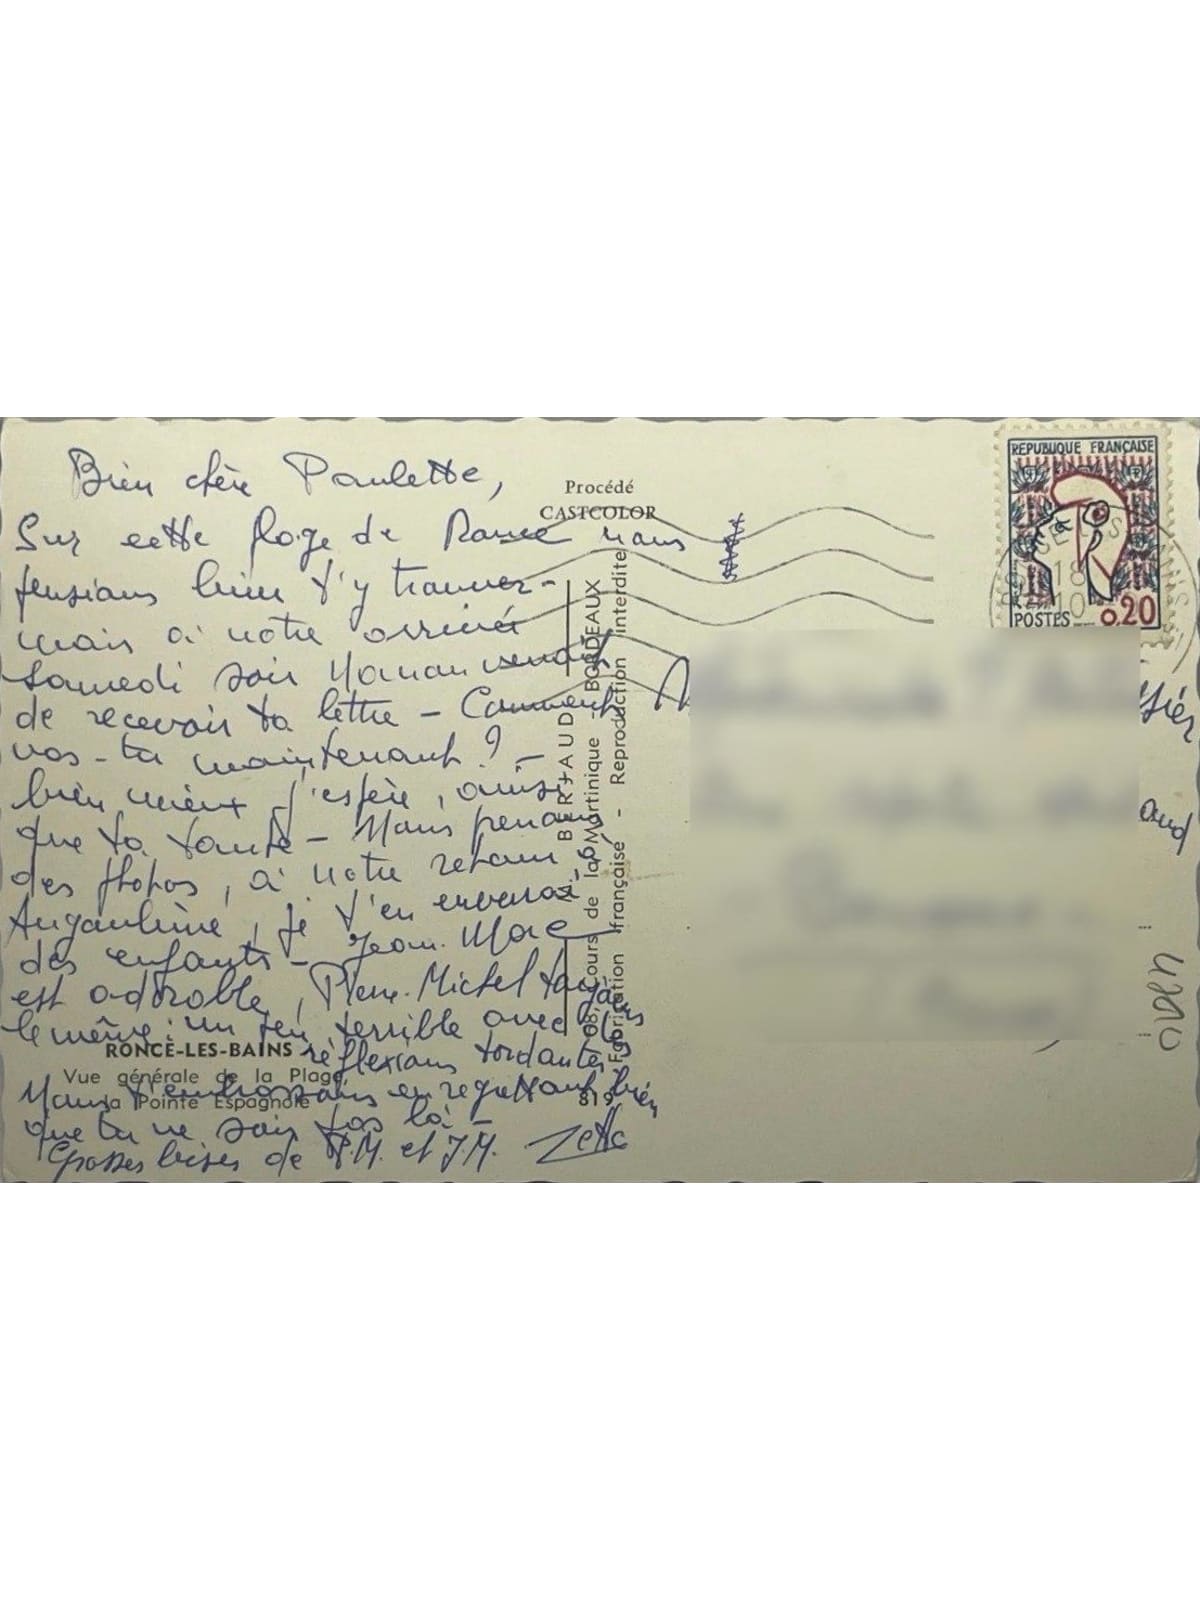 Bien chère Paulette,
Sur cette plage de Ronce nous
pensions bien t'y trouver -
mais à notre arrivée
Samedi soir Maman venait
de recevoir ta lettre - Comment
vas-tu maintenant ? -
bien mieux j'espère, ainsi
que ta tante - Nous prenons
des photos, à notre retour à
Angoulême, je t'en enverrai
des enfants - Jean-Marc
est adorable, Pierre-Michel toujours
le même : un peu terrible avec des
réflexions tordantes
Nous t'embrassons en regrettant bien
que tu ne sois pas là -
Grosses bises de P.M. et J.M. Zette
RONCE-LES-BAINS
Vue générale de la Plage
la Pointe Espagnole
819
Procédé
CASTCOLOR
BERJAUD
108, Cours de la Martinique - BORDEAUX
Fabrication française - Reproduction interdite
RÉPUBLIQUE FRANÇAISE
POSTES 0,20
18
10